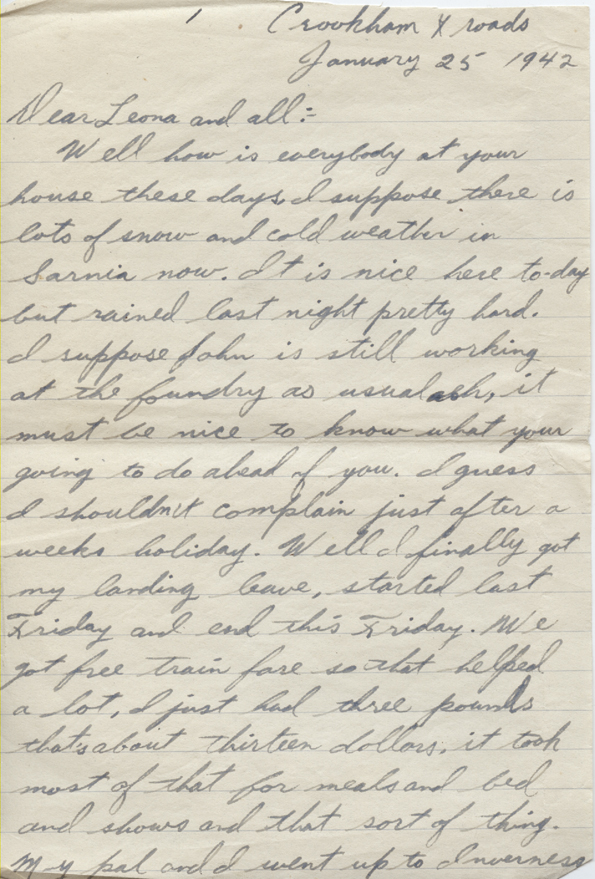 1
Crookham X roads
January 25 1942
Dear Leona and all:-
Well how is everybody at your
house these days, I suppose there is
lots of snow and cold weather in
Sarnia now. It is nice here to-day
but rained last night pretty hard.
I suppose John is still working
at the foundry as usual eh, it
must be nice to know what your
going to do ahead of you. I guess
I shouldn't complain just after a
weeks holiday. Well I finally got
my landing leave, started last
Friday and end this Friday. We
got free train fare so that helped
a lot, I just had three pounds
that's about thirteen dollars, it took
most of that for meals and bed
and shows and that sort of thing.
My pal and I went up to Inverness